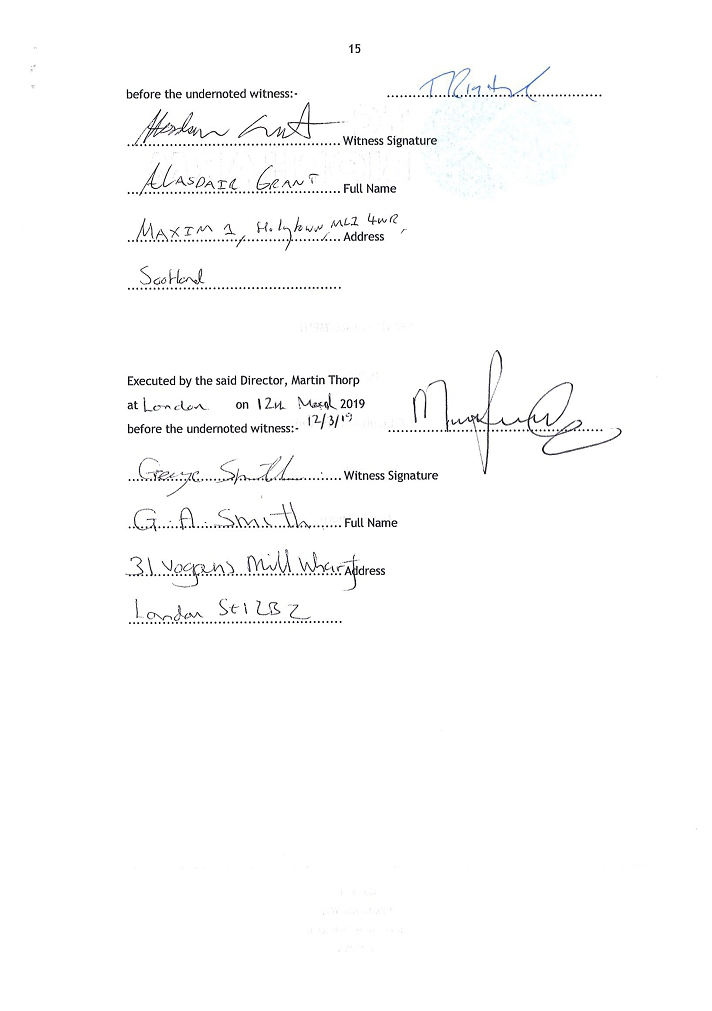 15
before the undernoted witness:-
Witness Signature
ALASDAIR GRANT Full Name
MAXIM 1, Holytown, ML1 4WR, Address
Scotland
Executed by the said Director, Martin Thorp
at London on 12th March 2019
12/3/19
before the undernoted witness:-
George Smith Witness Signature
G. A. Smith Full Name
31 Vogans Mill Wharf Address
London SE1 2BZ